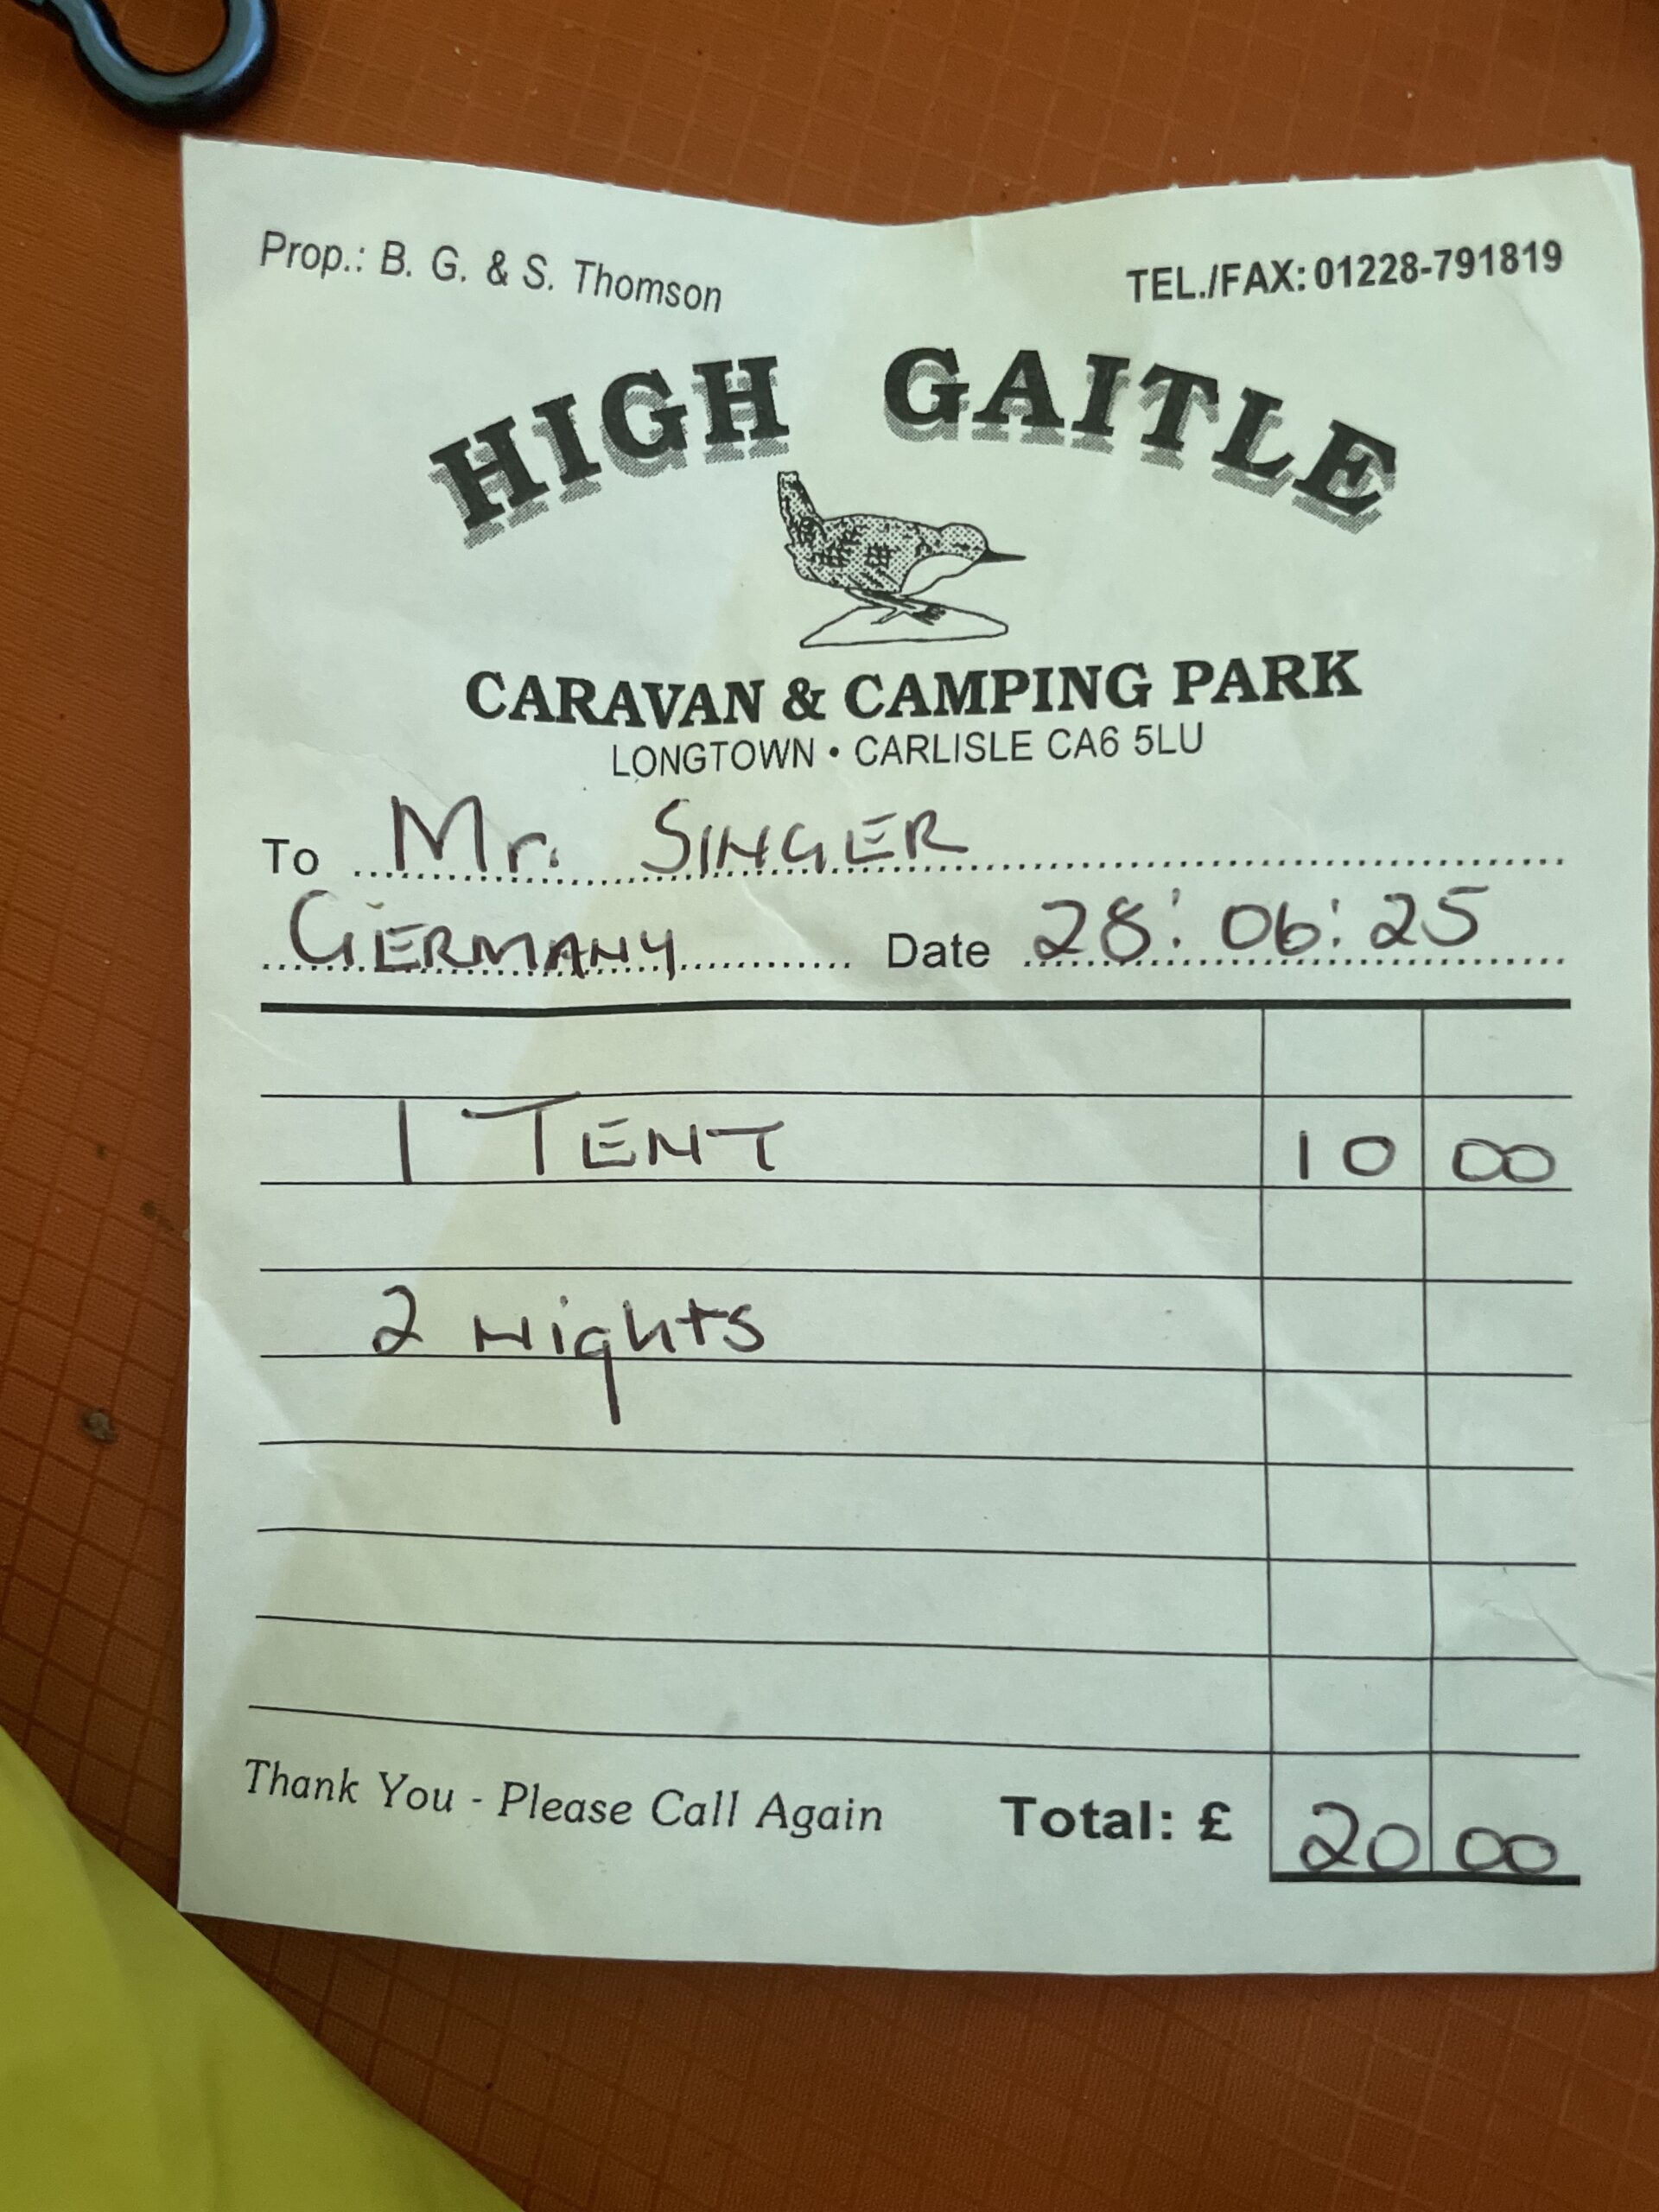 Prop.: B. G. & S. Thomson TEL./FAX: 01228-791819
HIGH GAITLE
CARAVAN & CAMPING PARK
LONGTOWN • CARLISLE CA6 5LU
To Mr. SINGER
GERMANY Date 28:06:25
1 TENT 10 00
2 Nights
Thank You - Please Call Again Total: £ 20 00